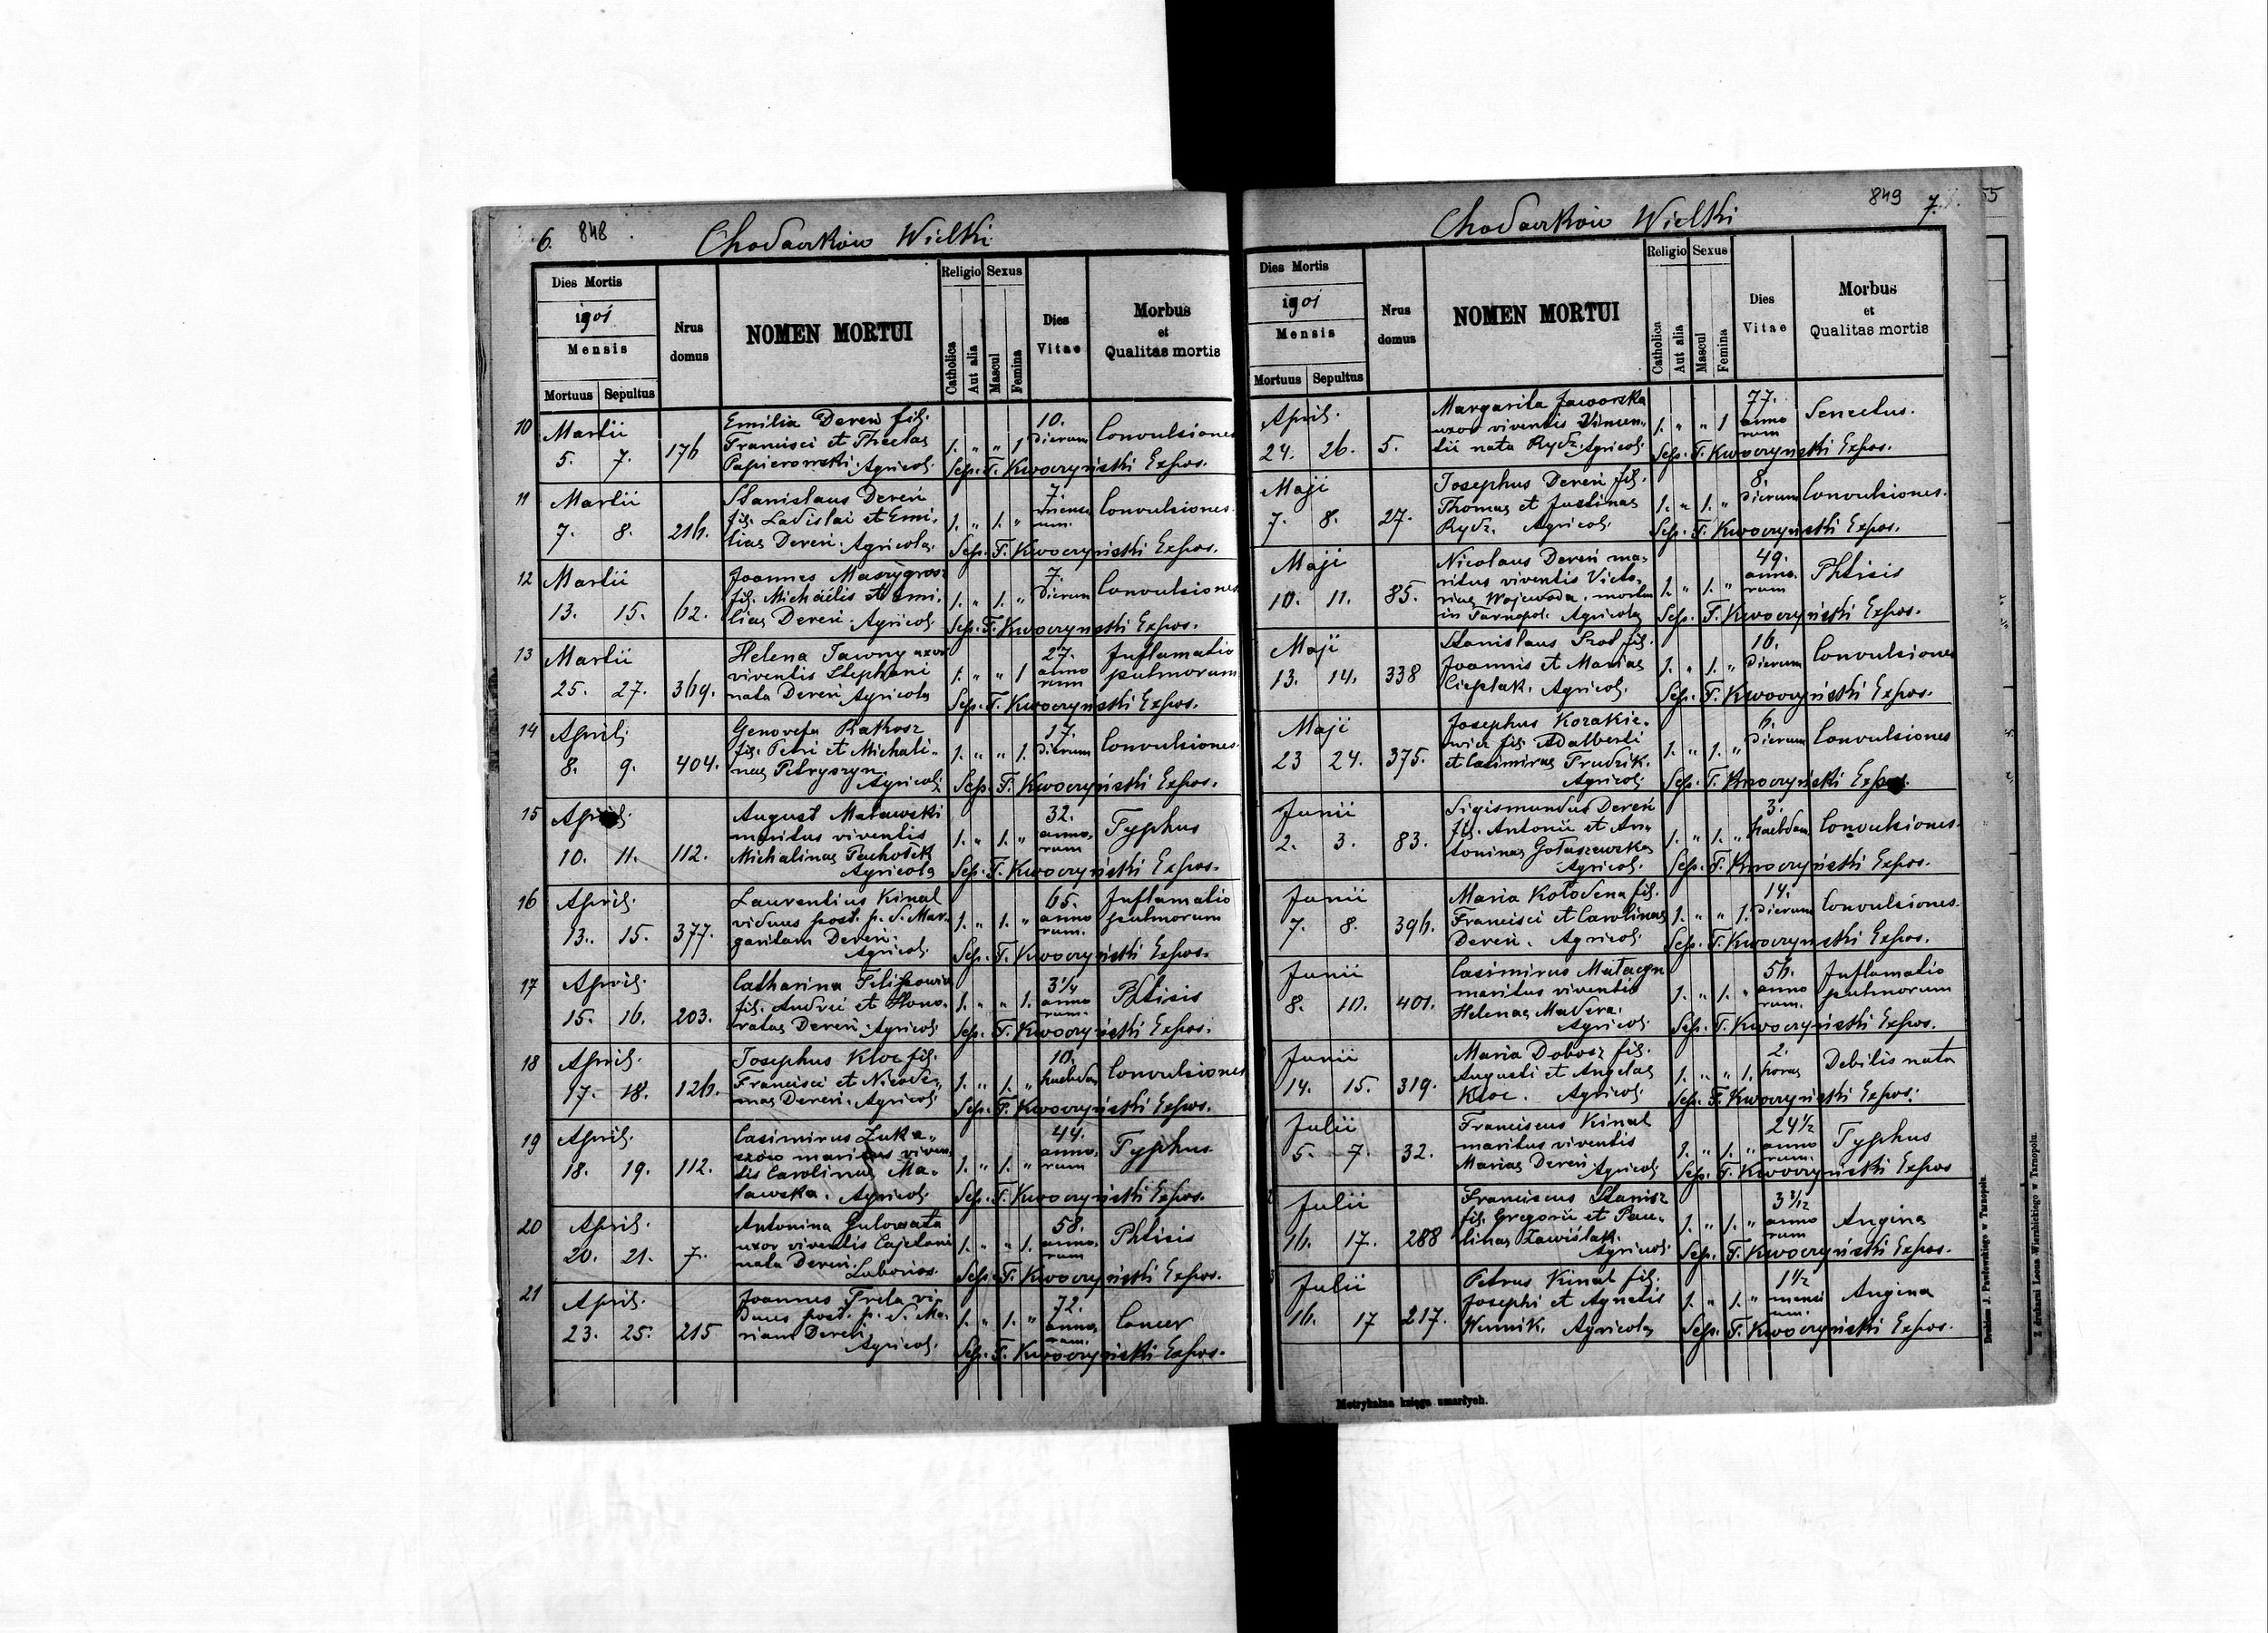 6. 848
Chodaczków Wielki
Dies Mortis
1901
Mensis
Mortuus Sepultus
Nrus domus
NOMEN MORTUI
Religio Sexus
Catholica Aut alia Mascul Femina
Dies Vitae
Morbus
et
Qualitas mortis
10 Martii 5. 7. 176
Emilia Dereń fil.
Francisci et Theclae
Papierowski. Agricol.
1. " " 1 10. dierum Convulsiones
Sep. F. Kwoczyński Expos.
11 Martii 7. 8. 216.
Stanislaus Dereń
fil. Ladislai et Emi-
liae Dereń. Agricola.
1. " 1. " 7. mensium. Convulsiones.
Sep. F. Kwoczyński Expos.
12 Martii 13. 15. 62.
Joannes
fil. Michaëlis et Emi-
liae Dereń. Agricol.
1. " 1. " 7. dierum Convulsiones
Sep. F. Kwoczyński Expos.
13 Martii 25. 27. 369.
Helena Jawny uxor
viventis Stephani
nata Dereń Agricola
1. " " 1 27. annorum Inflamatio pulmorum
Sep. F. Kwoczyński Expos.
14 April. 8. 9. 404.
Genovefa Rakosz
fil. Petri et Michali-
nae Petryszyn.
Agricol.
1. " " 1. 17. dierum Convulsiones
Sep. F. Kwoczyński Expos.
15 April. 10. 11. 112.
August Maławski
maritus viventis
Michalinae Pachołek
Agricola
1. " 1. " 32. annorum Typhus
Sep. F. Kwoczyński Expos.
16 April. 13. 15. 377.
Laurentius Kinal
viduus post. p. d. Mar-
garitam Dereń.
Agricol.
1. " 1. " 65. annorum. Inflamatio pulmorum
Sep. F. Kwoczyński Expos.
17 April. 15. 16. 203.
Catharina Filipowicz
fil. Andrei et Hono-
ratae Dereń. Agricol.
1. " " 1. 3 1/4 annorum. Phtisis
Sep. F. Kwoczyński Expos.
18 April. 17. 18. 126.
Josephus Kloc fil.
Francisci et Nicode-
mae Dereń. Agricol.
1. " 1. " 10. haebda Convulsiones
Sep. F. Kwoczyński Expos.
19 April. 18. 19. 112.
Casimirus Łuka-
szów maritus viven-
tis Carolinae Ma-
ławska. Agricol.
1. " 1. " 44. annorum Typhus
Sep. F. Kwoczyński Expos.
20 April. 20. 21. 7.
Antonina Gulowata
uxor viventis Cajetani
nata Dereń.
Laborios.
1. " " 1. 58. annorum Phtisis
Sep. F. Kwoczyński Expos.
21 April. 23. 25. 215
Joannes Prela vi-
duus post. p. d. Ma-
riam Dereń
Agricol.
1. " 1. " 72. annorum. Cancer
Sep. F. Kwoczyński Expos.
849 7.
Chodaczków Wielki
Dies Mortis
1901
Mensis
Mortuus Sepultus
Nrus domus
NOMEN MORTUI
Religio Sexus
Catholica Aut alia Mascul Femina
Dies Vitae
Morbus
et
Qualitas mortis
April. 24. 26. 5.
Margarita Jaworska
uxor viventis Vincen-
tii nata Rydz. Agricol.
1. " " 1 77. annorum Senectus.
Sep. F. Kwoczyński Expos.
Maji 7. 8. 27.
Josephus Dereń fil.
Thomas et Justinae
Rydz. Agricol.
1. " 1. " 8. dierum Convulsiones.
Sep. F. Kwoczyński Expos.
Maji 10. 11. 85.
Nicolaus Dereń ma-
ritus viventis Victo-
riae Wojewoda, mortu
in Tarnopol. Agricola
1. " 1. " 49. annorum Phtisis
Sep. F. Kwoczyński Expos.
Maji 13. 14. 338
Stanislaus fil.
Joannis et Mariae
Cieplak. Agricol.
1. " 1. " 16. dierum Convulsiones
Sep. F. Kwoczyński Expos.
Maji 23 24. 375.
Josephus Kozakie-
wicz fil. Adalberti
et Casimirae Prudzik.
Agricol.
1. " 1. " 6. dierum Convulsiones
Sep. F. Kwoczyński Expos.
Junii 2. 3. 83.
Sigismundus Dereń
fil. Antonii et An-
toninae Gołaszewska
Agricol.
1. " 1. " 3. haebdom. Convulsiones.
Sep. F. Kwoczyński Expos.
Junii 7. 8. 396.
Maria Kołodena fil.
Francisci et Carolinae
Dereń. Agricol.
1. " " 1. 14. dierum Convulsiones.
Sep. F. Kwoczyński Expos.
Junii 8. 10. 401.
Casimirus Matacyn
maritus viventis
Helenae Madera.
Agricol.
1. " 1. " 56. annorum. Inflamatio pulmorum
Sep. F. Kwoczyński Expos.
Junii 14. 15. 319.
Maria Dobosz fil.
Augusti et Angelae
Kloc. Agricol.
1. " " 1. 2. horas Debilis nata
Sep. F. Kwoczyński Expos.
Julii 5. 7. 32.
Franciscus Kinal
maritus viventis
Mariae Dereń Agricol.
1. " 1. " 24 1/2 annorum. Typhus
Sep. F. Kwoczyński Expos
Julii 16. 17. 288
Franciscus Stanisz
fil. Gregorii et Pau-
linae Zawiślak.
Agricol.
1. " 1. " 3 3/12 annorum Angina
Sep. F. Kwoczyński Expos.
Julii 16. 17 217.
Petrus Kinal fil.
Josephi et Agnetis
Wennik. Agricola
1. " 1. " 1 1/2 mensium. Angina
Sep. F. Kwoczyński Expos.
Metrykalna księga umarłych.
Drukiem J. Pawłowskiego w Tarnopolu.
Z drukarni Leona Wierzbickiego w Tarnopolu.
55